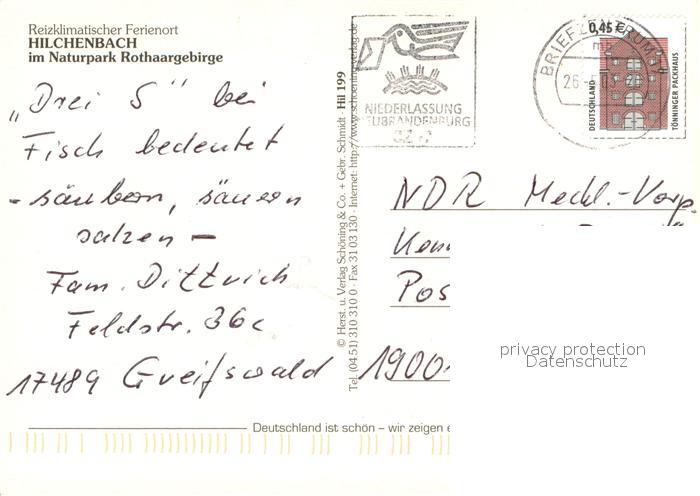 Reizklimatischer Ferienort
HILCHENBACH
im Naturpark Rothaargebirge
„Drei S“ bei
Fisch bedeutet
- säubern, säuern
salzen -
Fam. Dittrich
Feldstr. 36c
17489 Greifswald
Deutschland ist schön – wir zeigen e
© Herst. u. Verlag Schöning & Co. + Gebr. Schmidt · Hil 199
Tel. (04 51) 310 310 0 · Fax 31 03 130 · Internet: http://www.schoening-verlag.de
NIEDERLASSUNG
NEUBRANDENBURG
BRIEFZENTRUM
mb
26
0,45 €
DEUTSCHLAND
TÖNNINGER PACKHAUS
NDR Meckl.-Vorp.
Pos
1900
privacy protection
Datenschutz